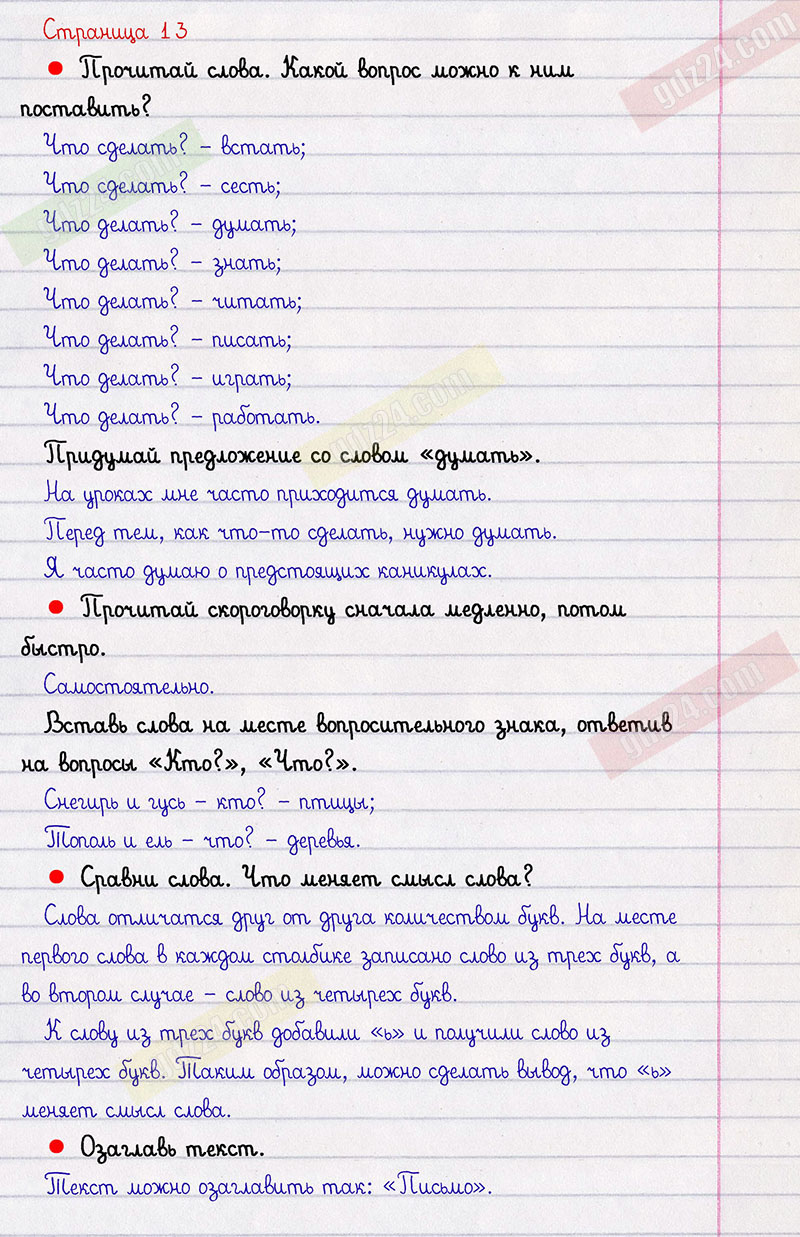 Страница 13
Прочитай слова. Какой вопрос можно к ним
поставить?
Что сделать? – встать;
Что сделать? – сесть;
Что делать? – думать;
Что делать? – знать;
Что делать? – читать;
Что делать? – писать;
Что делать? – играть;
Что делать? – работать.
Придумай предложение со словом «думать».
На уроках мне часто приходится думать.
Перед тем, как что-то сделать, нужно думать.
Я часто думаю о предстоящих каникулах.
Прочитай скороговорку сначала медленно, потом
быстро.
Самостоятельно.
Вставь слова на месте вопросительного знака, ответив
на вопросы «Кто?», «Что?».
Снегирь и гусь – кто? – птицы;
Тополь и ель – что? – деревья.
Сравни слова. Что меняет смысл слова?
Слова отличатся друг от друга количеством букв. На месте
первого слова в каждом столбике записано слово из трех букв, а
во втором случае – слово из четырех букв.
К слову из трех букв добавили «ь» и получили слово из
четырех букв. Таким образом, можно сделать вывод, что «ь»
меняет смысл слова.
Озаглавь текст.
Текст можно озаглавить так: «Письмо».
gdz24.com
gdz24.com
gdz24.com
gdz24.com
gdz24.com